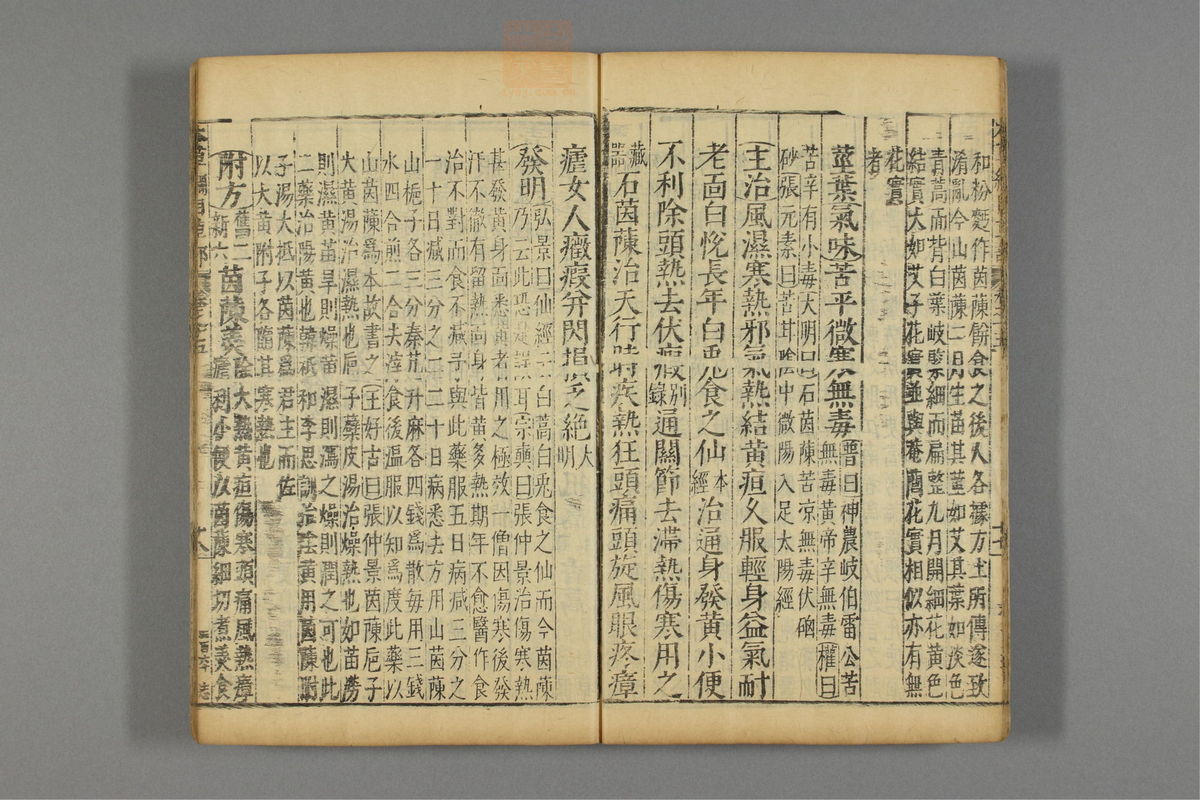 和粉麪作茵蔯餻食之後人各據方土所傳遂致
淆亂今山茵蔯二月生苗其莖如艾其葉如淡色
青蒿而背白葉岐緊細而扁整九月開細花黃色
結實大如艾子花實並與菴䕡花實相似亦有無
花實
者
莖葉氣味苦平微寒無毒
普曰神農岐伯雷公苦
無毒黃帝辛無毒權曰
苦辛有小毒大明曰石茵蔯苦凉無毒伏硇
砂張元素曰苦甘陰中微陽入足太陽經
主治風濕寒熱邪氣熱結黃疸久服輕身益氣耐
老面白悅長年白兎食之仙本經治通身發黃小便
不利除頭熱去伏瘕別錄通關節去滯熱傷寒用之
藏器石茵蔯治天行時疾熱狂頭痛頭旋風眼疼瘴
瘧女人癥瘕并閃損乏絕大明
發明
弘景曰仙經云白蒿白兎食之仙而今茵蔯
乃云此恐是誤耳宗奭曰張仲景治傷寒熱
甚發黃身面悉黃者用之極效一僧因傷寒後發
汗不徹有留熱面身皆黃多熱期年不愈醫作食
治不對而食不减予與此藥服五日病减三分之
一十日减三分之二二十日病悉去方用山茵蔯
山梔子各三分秦艽升麻各四錢爲散每用三錢
水四合煎二合去滓食後溫服以知爲度此藥以
山茵蔯爲本故書之王好古曰張仲景茵蔯巵子
大黃湯治濕熱也巵子蘗皮湯治燥熱也如苗澇
則濕黃苗旱則燥黃濕則瀉之燥則潤之可也此
二藥治陽黃也韓祇和李思訓治陰黃用茵蔯附
子湯大抵以茵蔯爲君主而佐
以大黃附子各隨其寒熱也
附方
舊二
新六
茵蔯羮
除大熱黃疸傷寒頭痛風熱瘴
瘧利小便以茵蔯細切煮羮食